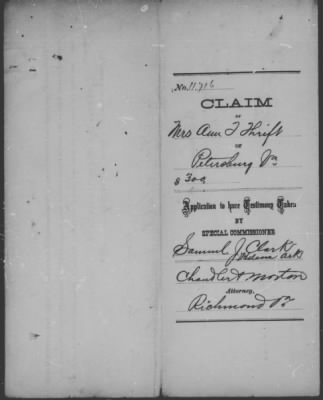 No. 11,716
CLAIM
OF
Mrs Ann T Thrift
OF
Petersburg Va
$ 300
Application to have Testimony Taken
BY
SPECIAL COMMISSIONER
Samuel J. Clark
Helena Ark
Chandler & Morton
Attorney,
Richmond Va